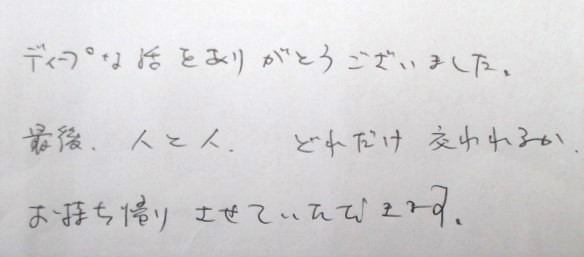 ディープな話をありがとうございました。
最後、人と人、どれだけ交われるか、
お持ち帰りさせていただきます。